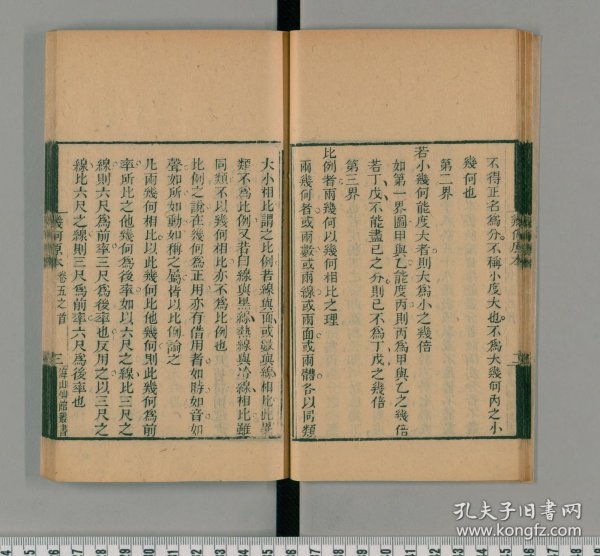 不得正名爲分不稱小度大也不爲大幾何內之小
幾何也
第二界
若小幾何能度大者則大爲小之幾倍
如第一界圖甲與乙能度丙則丙爲甲與乙之幾倍
若丁戊不能盡己之分則己不爲丁戊之幾倍
第三界
比例者兩幾何以幾何相比之理
兩幾何者或兩數或兩線或兩面或兩體各以同類
大小相比謂之比例若線與面或數與線相比此異
類不爲比例又若白線與黑線熱線與冷線相比雖
同類不以幾何相比亦不爲比例也
比例之說在幾何爲正用亦有借用者如時如音如
聲如所如動如稱之屬皆以比例論之
凡兩幾何相比以此幾何比他幾何則此幾何爲前
率所比之他幾何爲後率如以六尺之線比三尺之
線則六尺爲前率三尺爲後率也反用之以三尺之
線比六尺之線則三尺爲前率六尺爲後率也
幾何原本 卷五之首 三 海山仙館叢書
孔夫子旧书网
www.kongfz.com